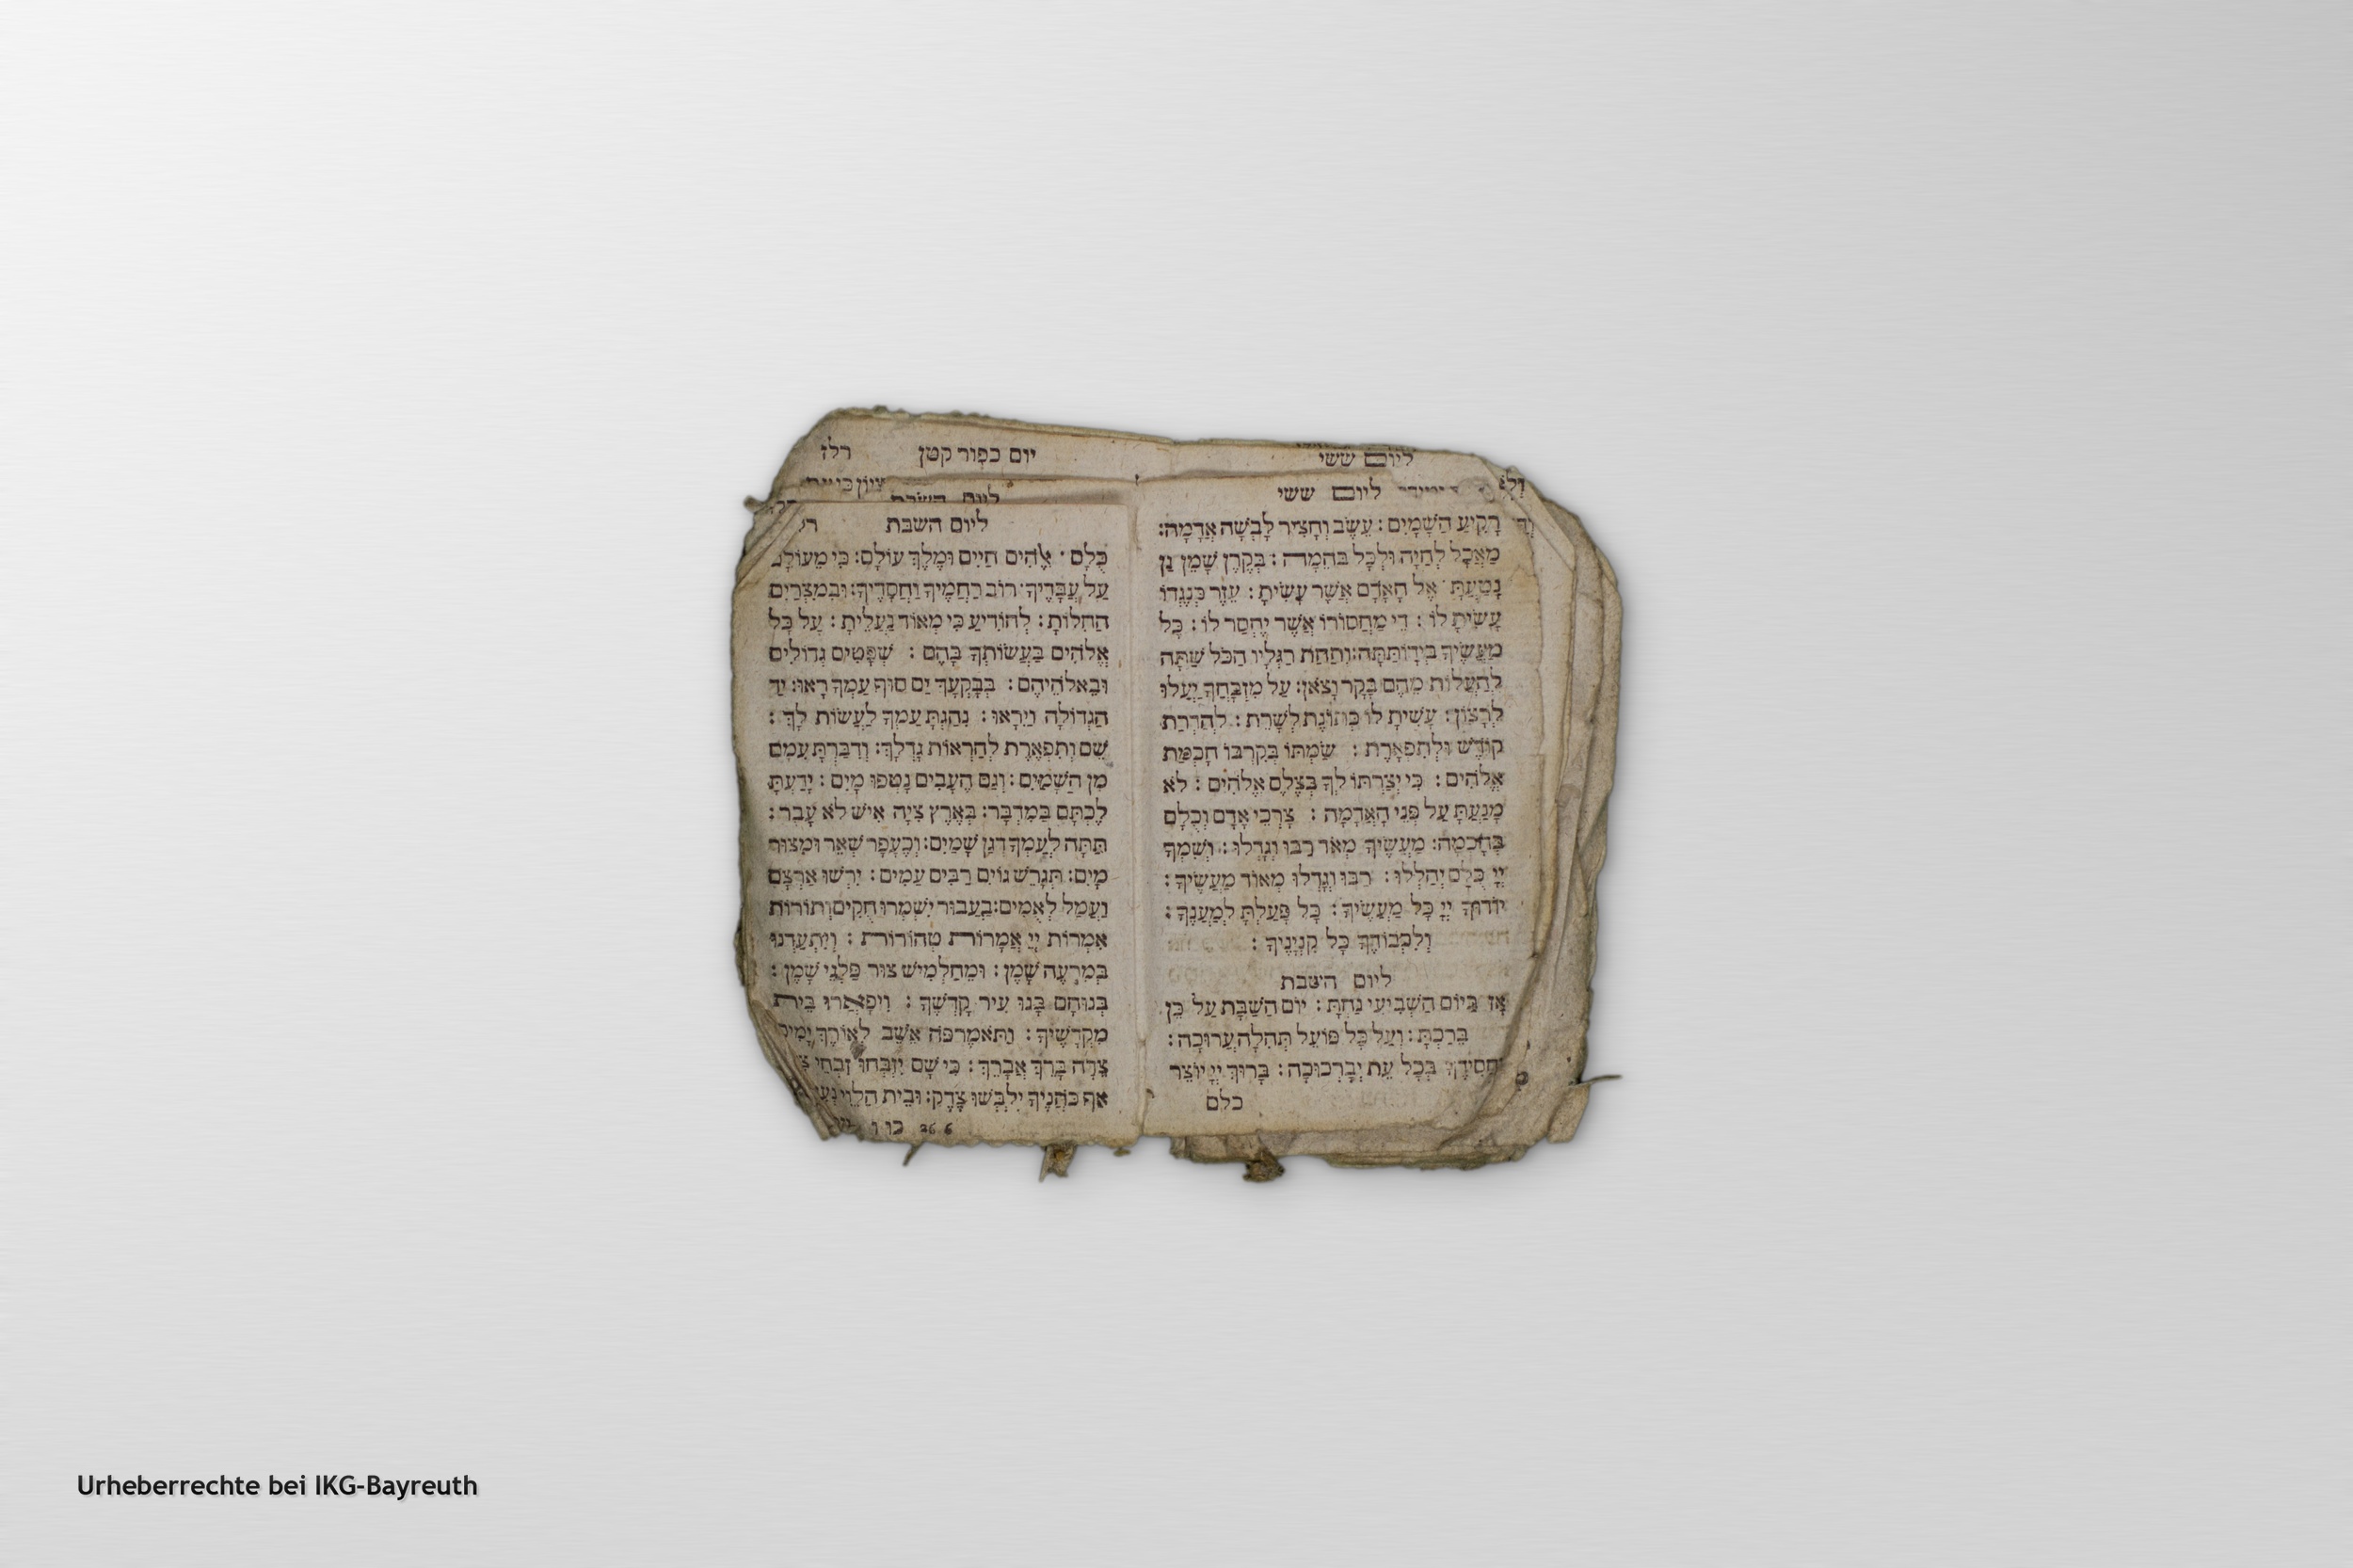 ליום ששי
ליום ששי
רָקִיעַ הַשָּׁמָיִם : עֵשֶׂב וְחָצִיר לָבְשָׁה אֲדָמָה:
מַאֲכָל לְחַיָּה וּלְכָל בְּהֵמָה : בְּקֶרֶן שָׁמֵן גַּן
נָטַעְתָּ אֶל הָאָדָם אֲשֶׁר עָשִׂיתָ : עֵזֶר כְּנֶגְדּוֹ
עָשִׂיתָ לוֹ : דֵּי מַחְסוֹרוֹ אֲשֶׁר יֶחְסַר לוֹ : כָּל
מַעֲשֶׂיךָ בְּיָדוֹ תַּתָּה: וְתַחַת רַגְלָיו הַכֹּל שַׁתָּה
לְהַעֲלוֹת מֵהֶם בָּקָר וָצֹאן: עַל מִזְבָּחֲךָ יַעֲלוּ
לְרָצוֹן: עָשִׂיתָ לוֹ כְּתוֹנֶת לְשָׁרֵת : לְהַדְרַת
קוֹדֶשׁ וּלְתִפְאָרֶת : שַׂמְתּוֹ בְּקִרְבּוֹ חָכְמַת
אֱלֹהִים : כִּי יְצַרְתּוֹ לְךָ בְּצֶלֶם אֱלֹהִים : לֹא
מָנַעְתָּ עַל פְּנֵי הָאֲדָמָה : צָרְכֵי אָדָם וְכֻלָּם
בְּחָכְמָה: מַעֲשֶׂיךָ מְאֹד רַבּוּ וְגָדְלוּ : וְשִׁמְךָ
יְיָ כֻּלָּם יְהַלְלוּ : רַבּוּ וְגָדְלוּ מְאוֹד מַעֲשֶׂיךָ :
יוֹדוּךָ יְיָ כָּל מַעֲשֶׂיךָ : כָּל פָּעַלְתָּ לְמַעֲנֶךָ :
וְלִכְבוֹדְךָ כָּל קִנְיָנֶיךָ :
ליום השבת
אָז בַּיּוֹם הַשְּׁבִיעִי נַחְתָּ : יוֹם הַשַּׁבָּת עַל כֵּן
בֵּרַכְתָּ : וְעַל כָּל פּוֹעַל תְּהִלָּה עֲרוּכָה :
חֲסִידֶיךָ בְּכָל עֵת יְבָרְכוּכָה : בָּרוּךְ יְיָ יוֹצֵר
כלם
יום כפור קטן רלז
ליום השבת
ליום השבת
כֻּלָּם אֱלֹהִים חַיִּים וּמֶלֶךְ עוֹלָם: כִּי מֵעוֹלָם
עַל עֲבָדֶיךָ רוֹב רַחֲמֶיךָ וַחֲסָדֶיךָ: וּבְמִצְרַיִם
הַחִלּוֹתָ : לְהוֹדִיעַ כִּי מְאוֹד נַעֲלֵיתָ : עַל כָּל
אֱלֹהִים בַּעֲשׂוֹתְךָ בָּהֶם : שְׁפָטִים גְּדוֹלִים
וּבֵאלֹהֵיהֶם : בְּבָקְעֲךָ יַם סוּף עַמְּךָ רָאוּ: יַד
הַגְּדוֹלָה וַיִּרָאוּ : נִהַגְתָּ עַמְּךָ לַעֲשׂוֹת לָךְ :
שֵׁם וְתִפְאֶרֶת לְהַרְאוֹת גָּדְלָךְ: וְדִבַּרְתָּ עִמָּם
מִן הַשָּׁמַיִם : וְגַם הֶעָבִים נָטְפוּ מָיִם : יָדַעְתָּ
לֶכְתָּם בַּמִּדְבָּר: בְּאֶרֶץ צִיָּה אִישׁ לֹא עָבַר :
תַּתָּה לְעַמְּךָ דְּגַן שָׁמַיִם: וְכֶעָפָר שְׁאֵר וּמִצּוּר
מָיִם: תְּגָרֵשׁ גּוֹיִם רַבִּים עַמִּים : יִרְשׁוּ אַרְצָם
וַעֲמַל לְאֻמִּים: בַּעֲבוּר יִשְׁמְרוּ חֻקִּים וְתוֹרוֹת
אִמְרוֹת יְיָ אֲמָרוֹת טְהוֹרוֹת : וְיִתְעַדְּנוּ
בְּמִרְעֶה שָׁמֵן : וּמֵחַלְמִישׁ צוּר פַּלְגֵי שָׁמֶן :
בְּנוּחָם בָּנוּ עִיר קָדְשֶׁךָ : וִיפָאֲרוּ בֵּית
מִקְדָּשֶׁיךָ : וַתֹּאמֶר פֹּה אֵשֵׁב לְאוֹרֶךְ יָמִים
צֵדָה בָּרֵךְ אֲבָרֵךְ : כִּי שָׁם יִזְבְּחוּ זִבְחֵי
אַף כֹּהֲנֶיךָ יִלְבְּשׁוּ צֶדֶק: וּבֵית הַלֵּוִי
26 6
Urheberrechte bei IKG-Bayreuth